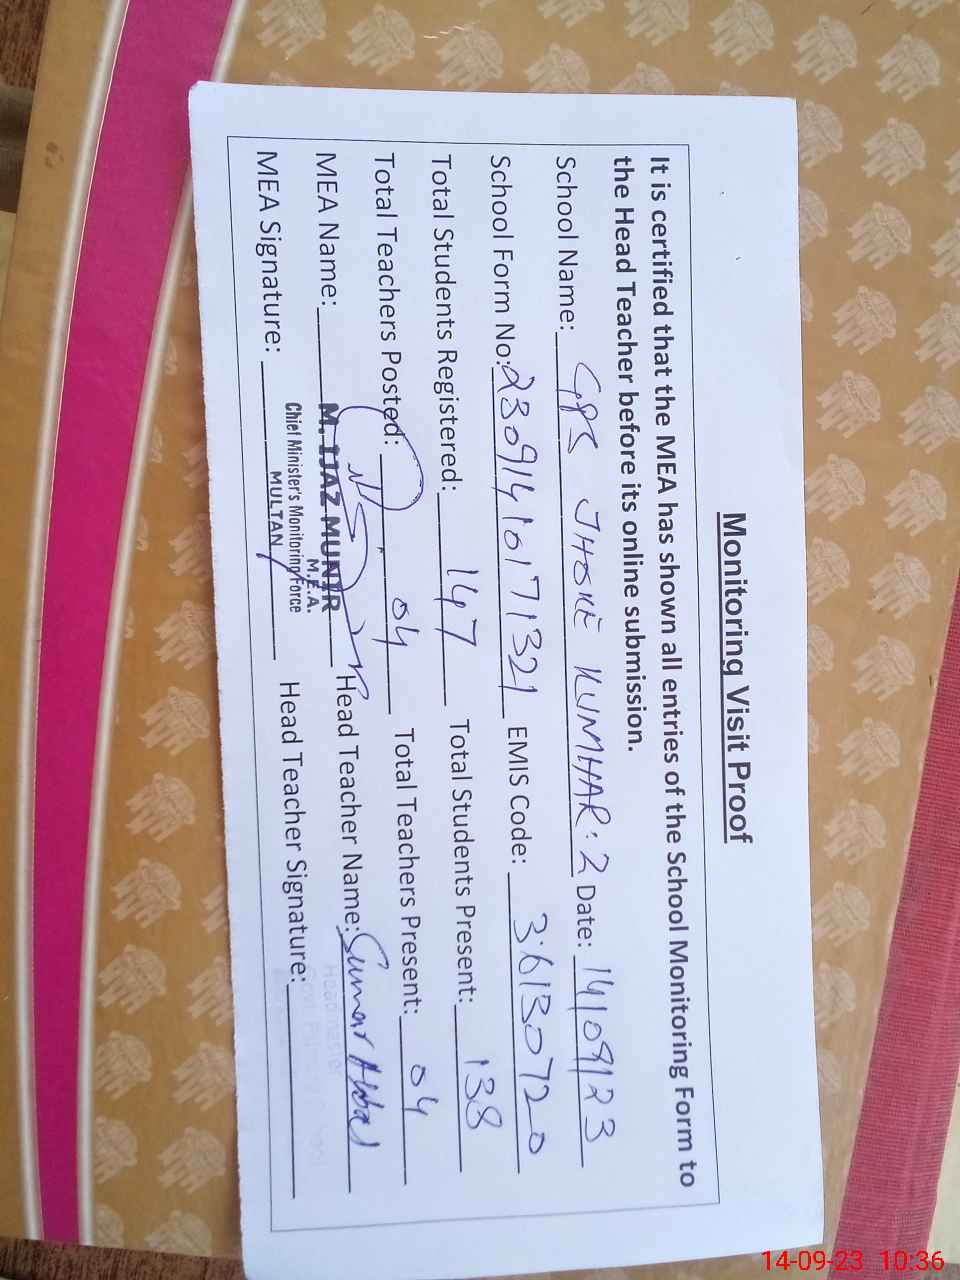 Monitoring Visit Proof
It is certified that the MEA has shown all entries of the School Monitoring Form to
the Head Teacher before its online submission.
School Name: GPS JHOKE KUMHAR: 2 Date: 14/09/23
School Form No: 23091410171321 EMIS Code: 36130720
Total Students Registered: 147 Total Students Present: 138
Total Teachers Posted: 04 Total Teachers Present: 04
MEA Name: M. IJAZ MUNIR Head Teacher Name: Sumar Abbas
M.E.A.
Chief Minister's Monitoring Force
MULTAN
MEA Signature: Head Teacher Signature:
14-09-23 10:36